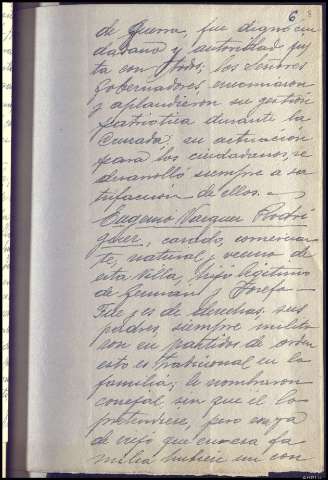 6
de Guerra, fue digno ciu
dadano y autoridad jus
ta con todos; los Señores
Gobernadores, encomiaron
y aplaudieron su gestión
patriotica durante la
Cruzada, su actuación
para los ciudadanos, se
desarrolló siempre a sa
tisfacción de ellos. -
Eugenio Vazquez Rodri
guez, casado, comercian
te, natural y vecino de
esta Villa, hijo legítimo
de German y Josefa -
Fide, es de derechas, sus
padres, siempre milita
ron en partidos de orden
esto es tradicional en la
familia; le nombraron
concejal sin que el lo
pretendiese, pero venía
de viejo que en esa fa
milia hubiese un con